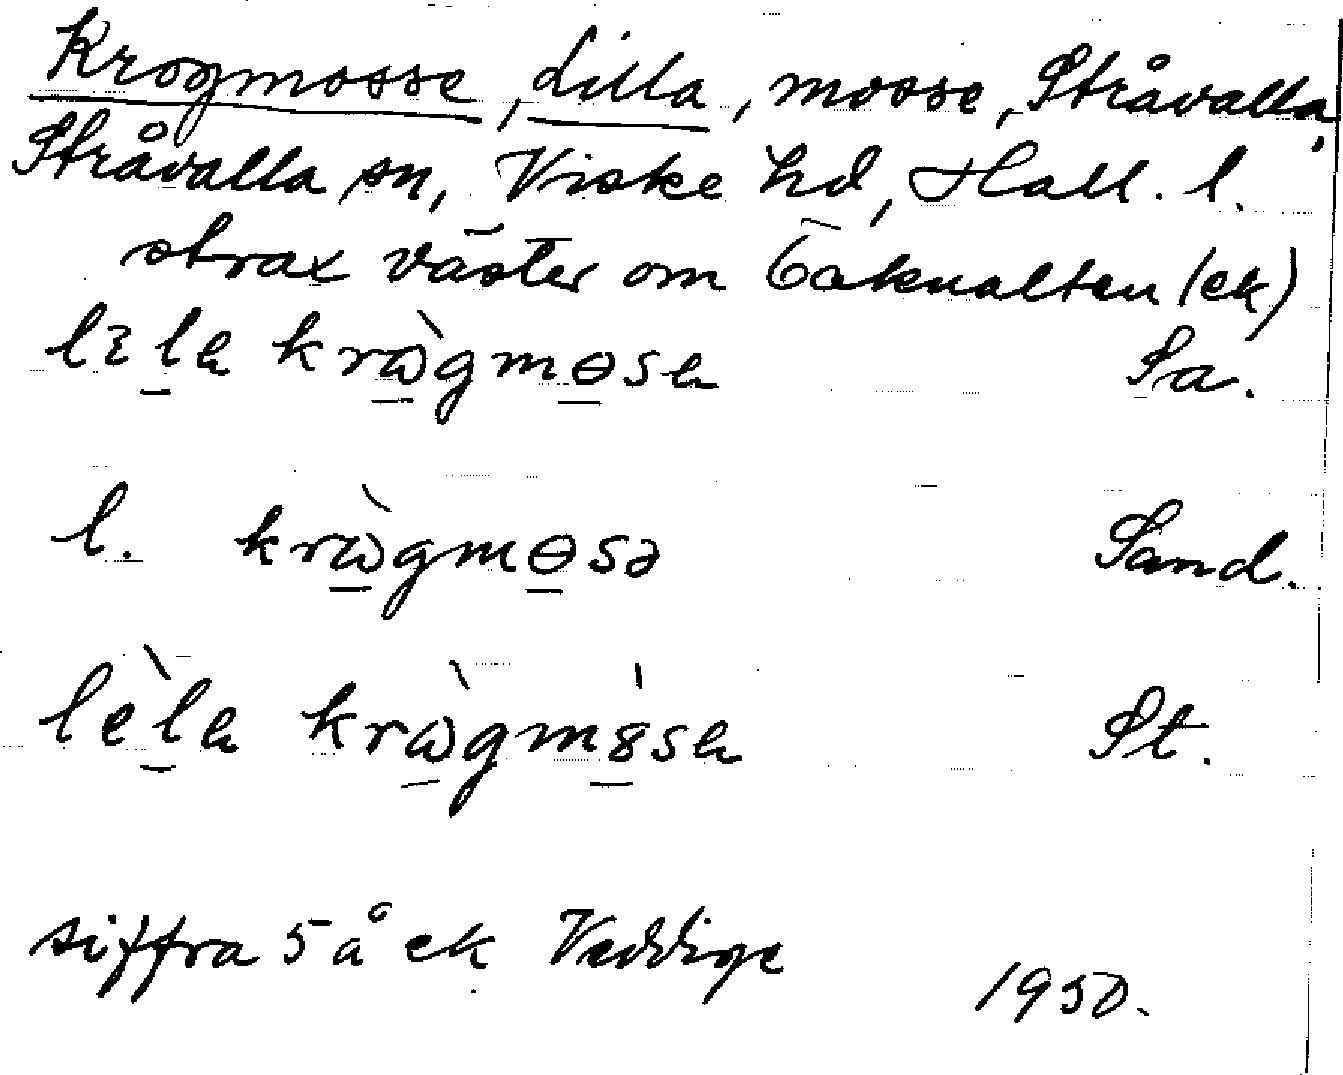 Krogmosse, Lilla, mosse, Stråvalla,
Stråvalla sn, Viske hd, Hall. l.
strax väster om Backvalten (ek)
lɛla krὼgmɵsa Sa.
l. krὼgmɵsə Sand.
lèla krὼgm8sa St.
siffra 5 å ek Veddige
1950.